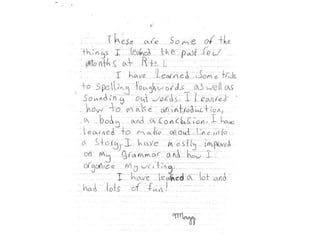 These are some of the
things I leaned the past few
months at
I have learned some triks
to spelling toughwords as well as
sounding out words. I leanred
how to make an introduction,
a body, and a conclusion. I have
learned to make an out line into
a story. I have mostly improved
on my grammar and how I
organize my writing.
I have leahed a lot and
had lots of fun!